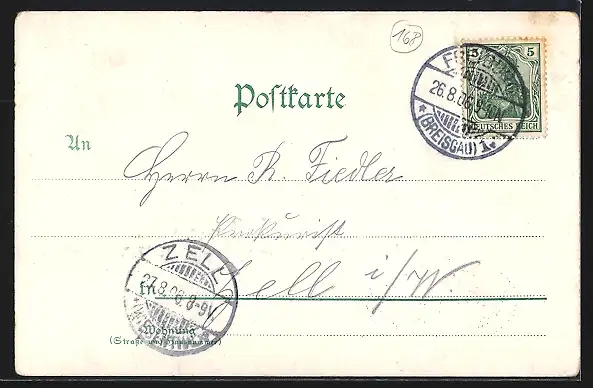 168
5
DEUTSCHES REICH
FREIBURG
26.8.06.
* (BREISGAU) 1 *
Postkarte
An
Herrn R. Fiedler
Prokurist
Zell i/W.
In
ZELL
27.8.06.8-9V.
Wohnung
(Straße und Hausnummer)